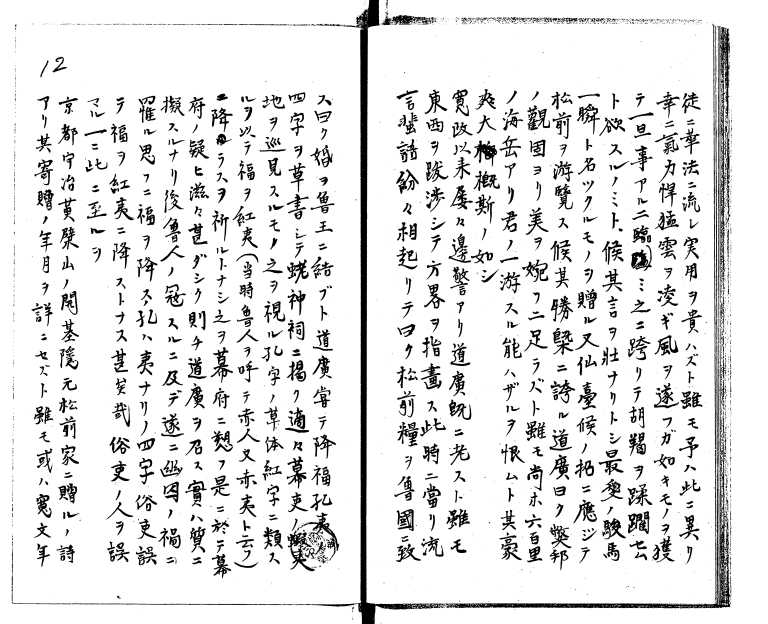 徒ニ華法ニ流レ実用ヲ貴ハズト雖モ予ハ此ニ異リ
幸ニ氣力悍猛雲ヲ凌ギ風ヲ逐フガ如キモノヲ獲
テ一旦事アルニ臨ミ之ニ跨リテ胡羯ヲ蹂躙セム
ト欲スルノミト、候其言ヲ壮ナリトシ最愛ノ駿馬
一瞬ト名ツクルモノヲ贈ル又仙臺候ノ招ニ應ジテ
松前ヲ游覧ス候其勝槩ニ誇ル道廣曰ク獘邦
ノ觀固ヨリ美ヲ婉フニ足ラズト雖モ尚ホ六百里
ノ海岳アリ君ノ一游スル能ハザルヲ恨ムト其豪
爽大概斯ノ如シ
寛政以来屡々邊警アリ道廣既ニ老スト雖モ
東西ヲ跋渉シテ方畧ヲ指畫ス此時ニ當リ流
言蜚語紛々相起リテ曰ク松前糧ヲ魯國ニ致
ス曰ク婚ヲ魯王ニ結ブト道廣嘗テ降福孔夷
四字ヲ草書シテ蛯神祠ニ掲ク適々幕吏ノ蝦夷
地ヲ巡見スルモノ之ヲ視ル孔字ノ草体紅字ニ類ス
ルヲ以テ福ヲ紅夷(当時魯人ヲ呼テ赤人又赤夷ト云フ)
ニ降ラスヲ祈ルトナシ之ヲ幕府ニ愬フ是ニ於テ幕
府ノ疑ヒ滋々甚ダシク則チ道廣ヲ召ス實ハ質ニ
擬スルナリ後魯人ノ冦スルニ及デ遂ニ幽囚ノ禍ニ
罹ル思フニ福ヲ降ス孔ハ夷ナリノ四字俗吏誤
テ福ヲ紅夷ニ降ストナス甚矣哉俗吏ノ人ヲ誤
マル一ニ此ニ至ルヲ
京都宇治黄檗山ノ開基隠元松前家ニ贈ルノ詩
アリ其寄贈ノ年月ヲ詳ニセズト雖モ或ハ寛文年
12